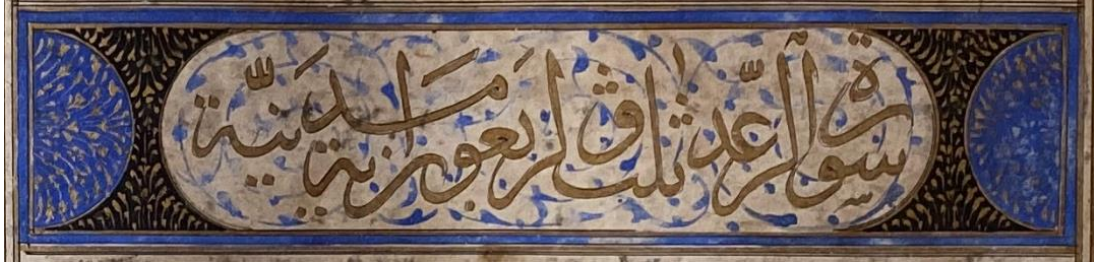 سورة الرعد ثلث واربعون اية مدنية